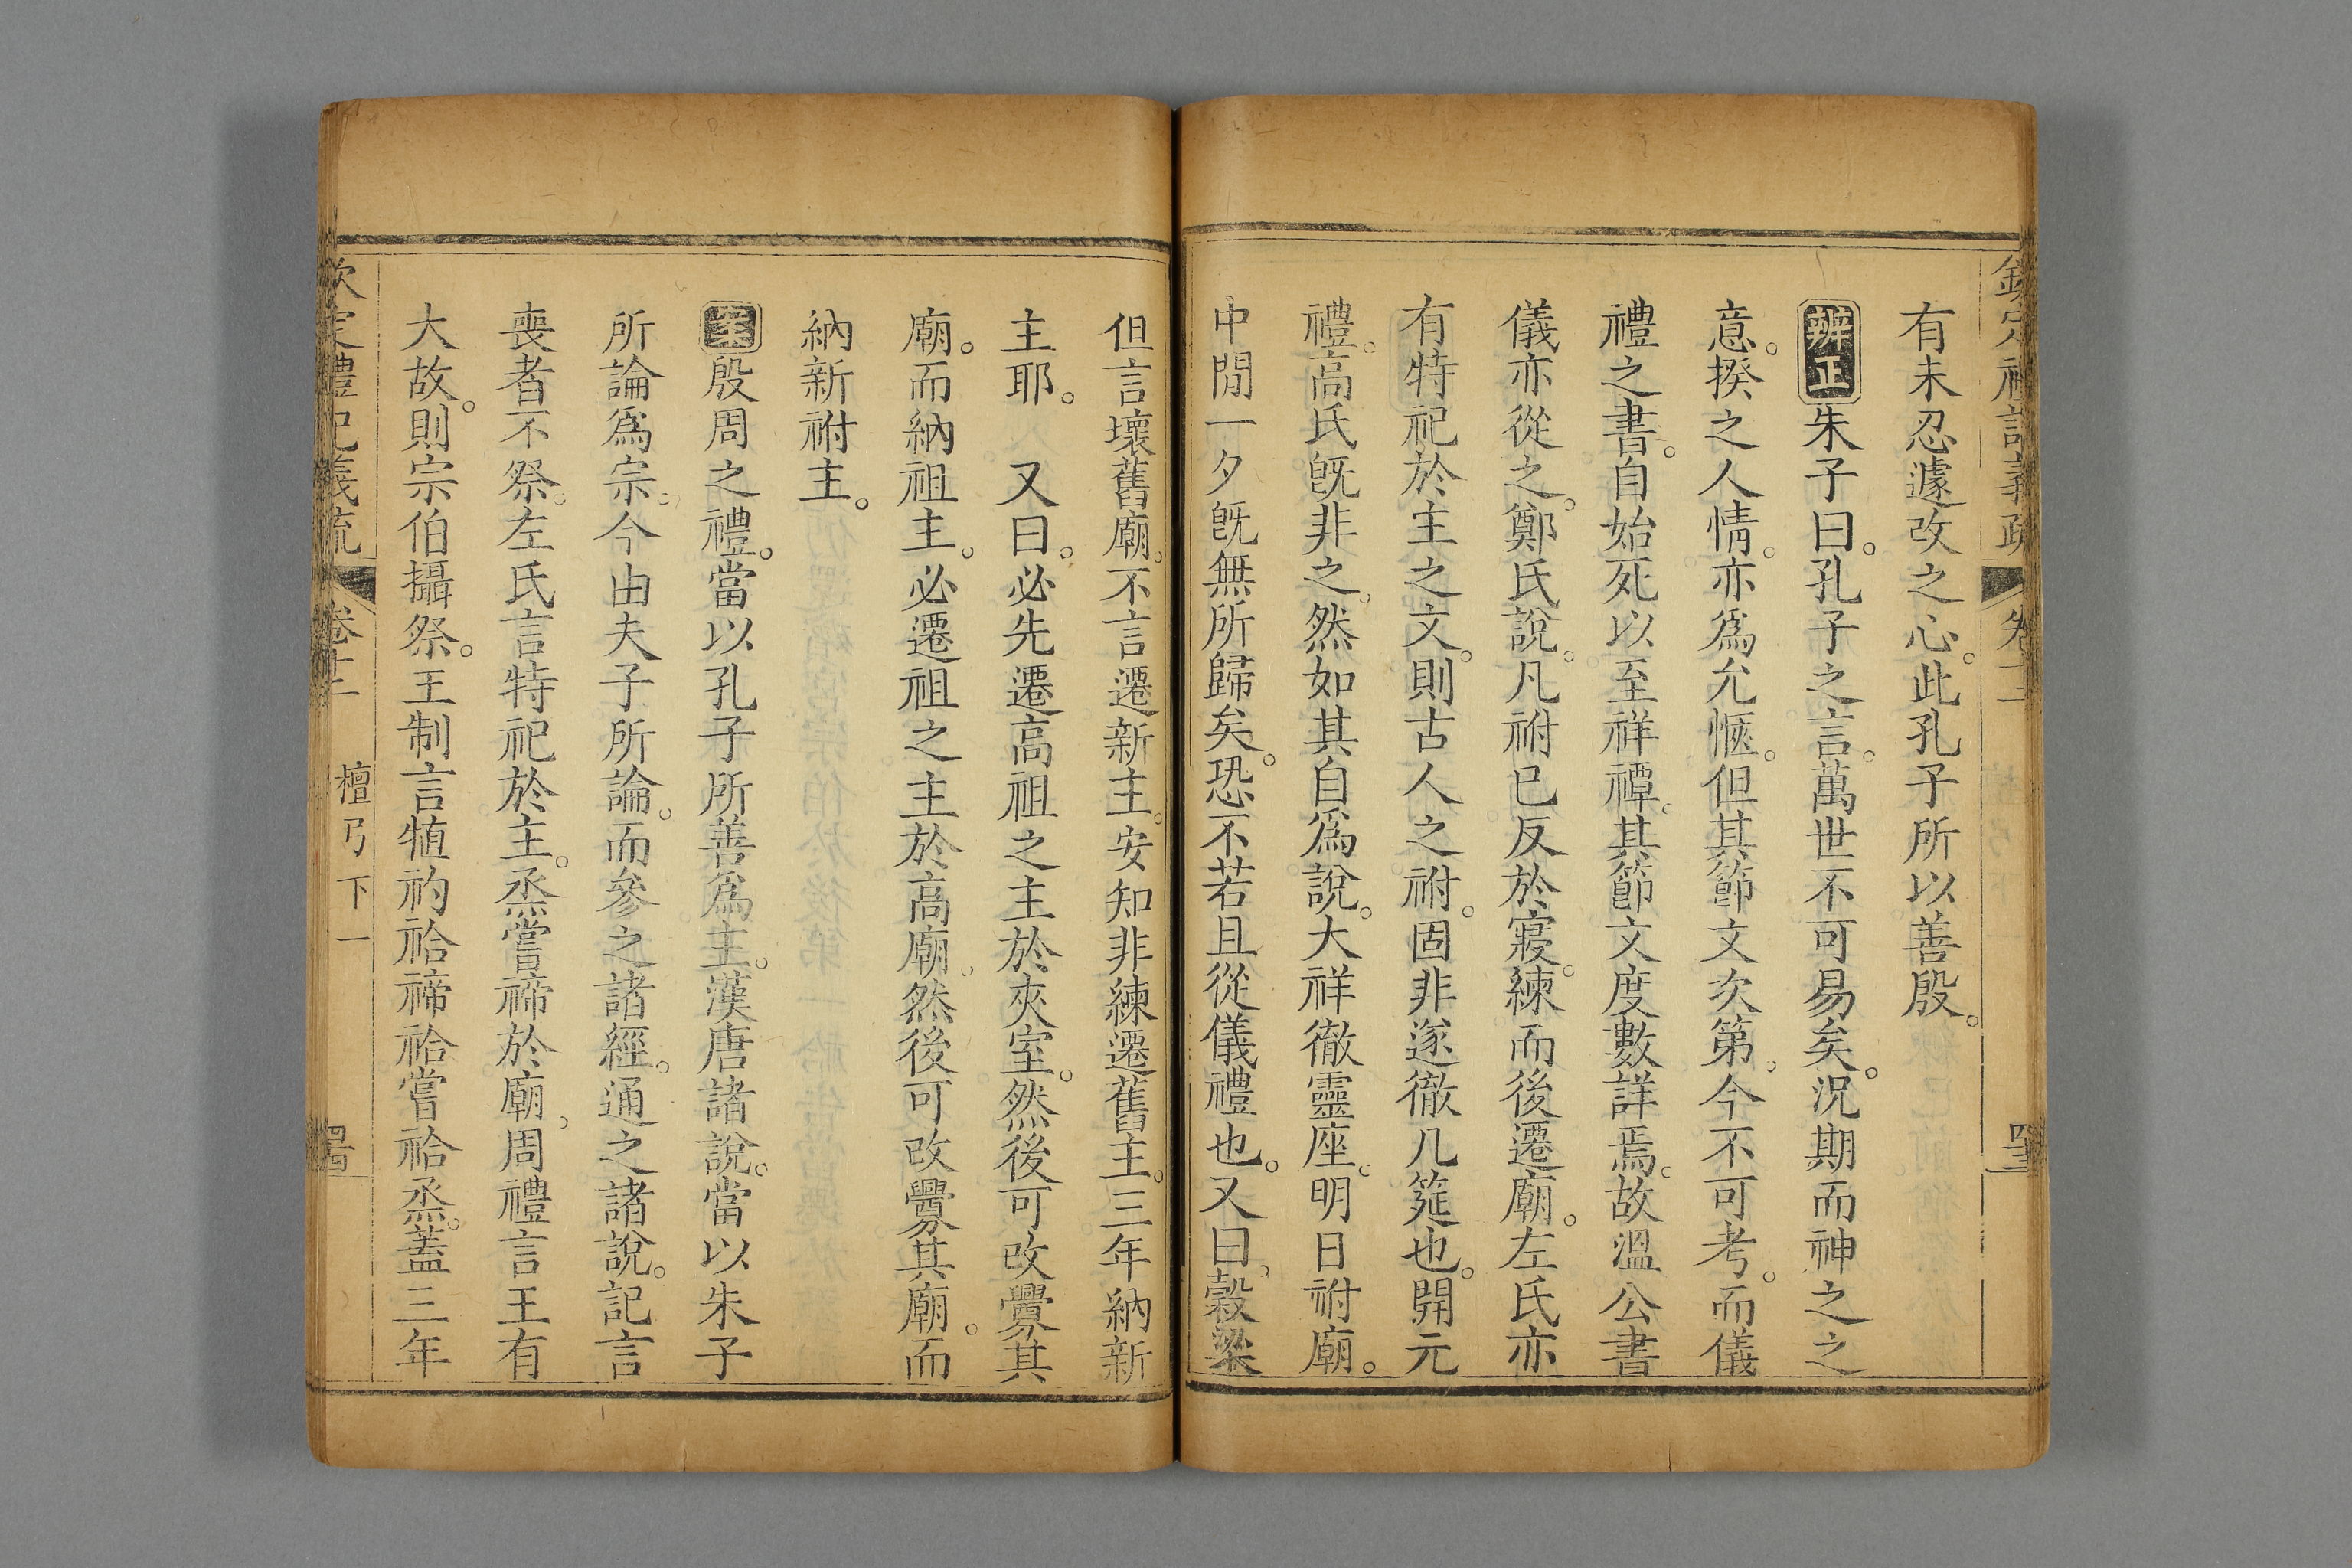 欽定禮記義疏 卷十二
有未忍遽改之心。此孔子所以善殷。
辨正朱子曰。孔子之言。萬世不可易矣。況期而神之之
意。揆之人情。亦爲允愜。但其節文次第。今不可考。而儀
禮之書。自始死以至祥禫。其節文度數詳焉。故溫公書
儀亦從之。鄭氏說。凡祔已反於寢。練而後遷廟。左氏亦
有特祀於主之文。則古人之祔。固非遂徹几筵也。開元
禮。高氏旣非之。然如其自爲說。大祥徹靈座。明日祔廟。
中閒一夕旣無所歸矣。恐不若且從儀禮也。又曰。穀梁
但言壞舊廟。不言遷新主。安知非練遷舊主。三年納新
主耶。 又曰。必先遷高祖之主於夾室。然後可改釁其
廟。而納祖主。必遷祖之主於高廟。然後可改釁其廟。而
納新祔主。
案殷周之禮。當以孔子所善爲主。漢唐諸說。當以朱子
所論爲宗。今由夫子所論。而參之諸經。通之諸說。記言
喪者不祭。左氏言特祀於主。烝嘗禘於廟。周禮言王有
大故。則宗伯攝祭。王制言犆礿祫禘祫嘗祫烝。蓋三年
欽定禮記義疏 卷十二 檀弓下一